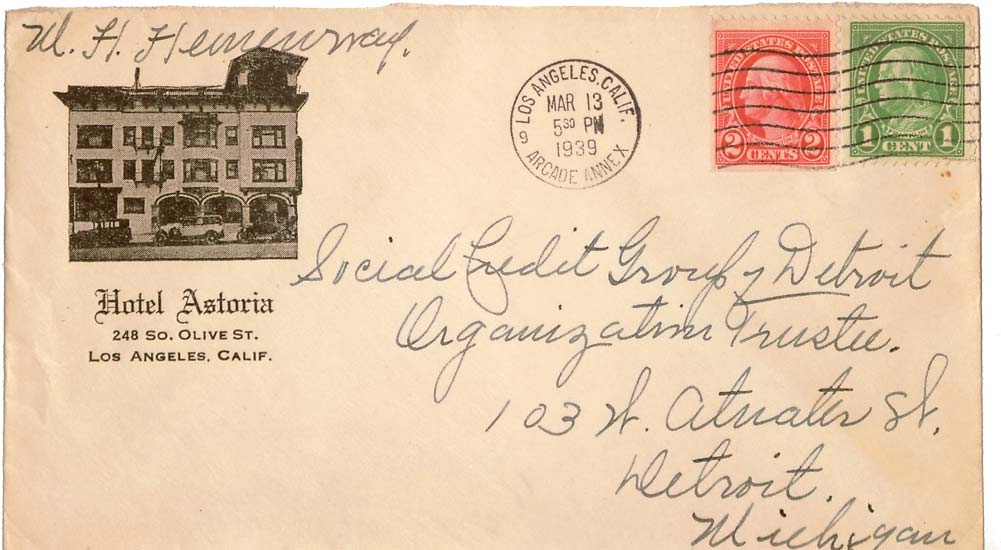 W. H. Hemenway.
Hotel Astoria
248 SO. OLIVE ST.
LOS ANGELES, CALIF.
LOS ANGELES, CALIF.
MAR 13
5 30 PM
1939
9
ARCADE ANNEX
UNITED STATES POSTAGE
2 CENTS 2
UNITED STATES POSTAGE
1 CENT 1
Social Credit Group of Detroit
Organization Trustee.
103 W. Atwater St.
Detroit.
Michigan